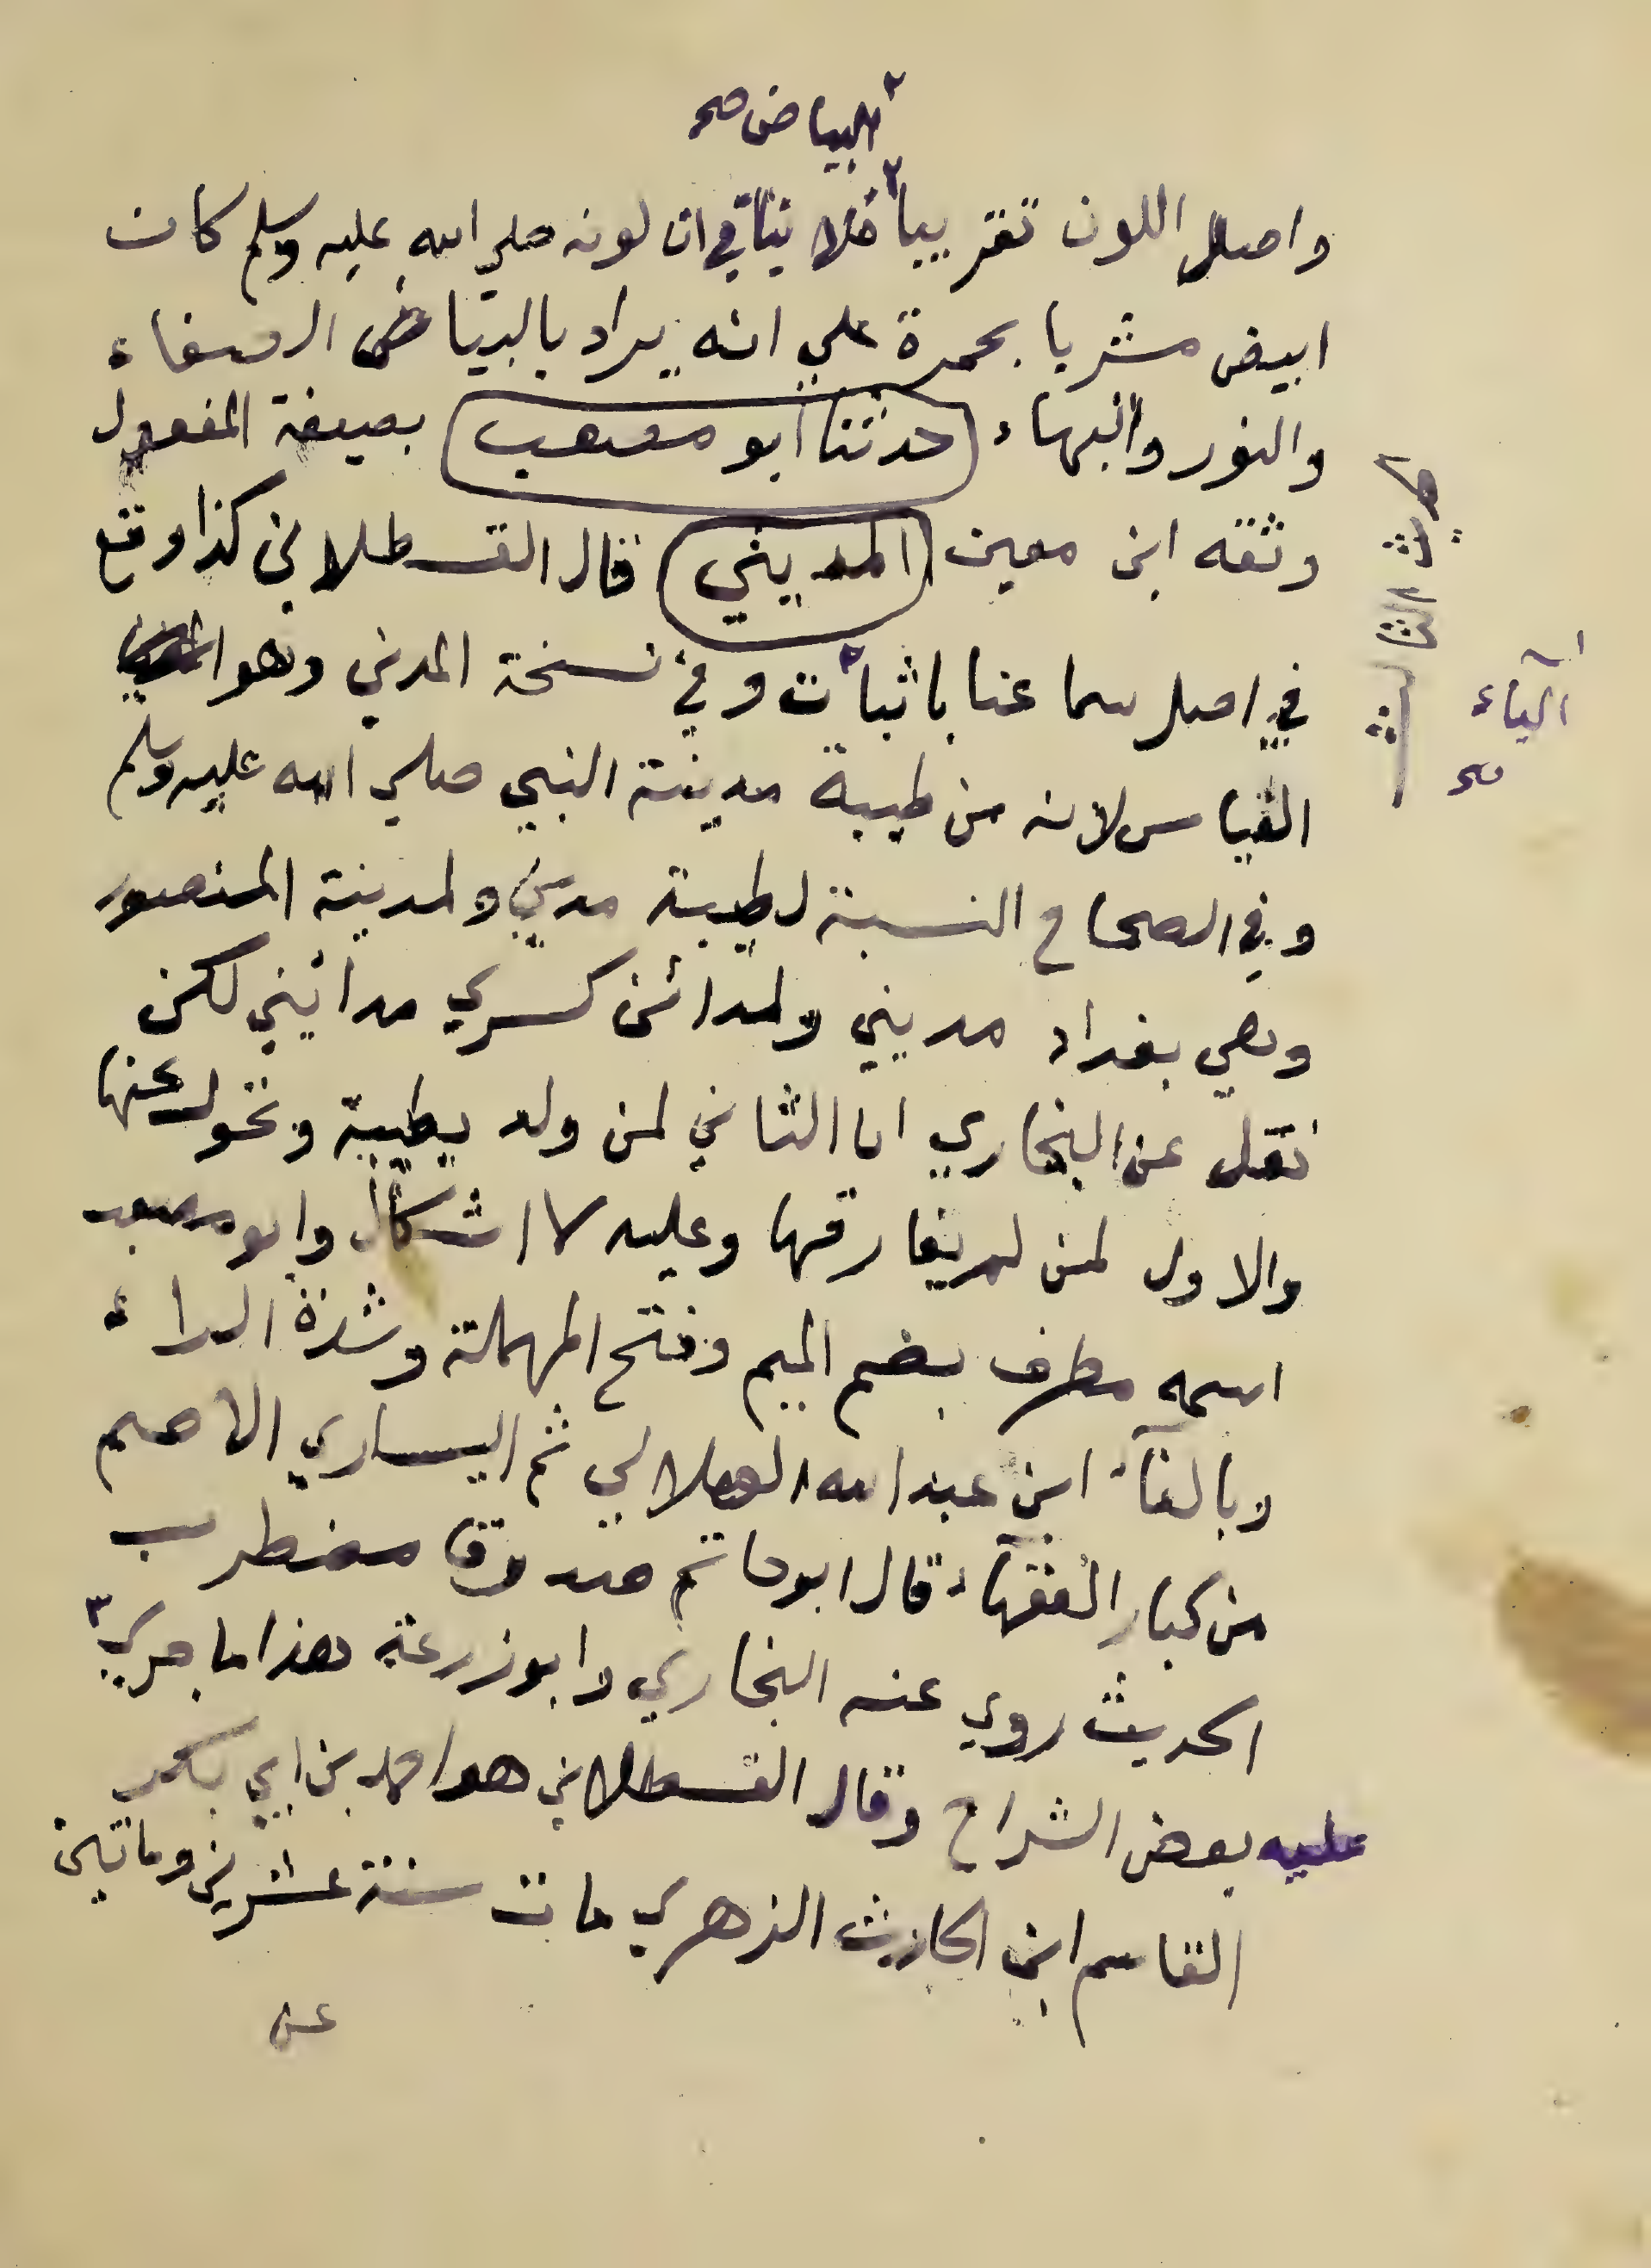 البياض صح
واصل اللون تقريبا فلا ينافي ان لونه صلي الله عليه وسلم كان
ابيض مشربا بحمرة علي انه يراد بالبياض الصفاء
والنور والبهاء حدثنا ابو مصعب بصيغة المفعول
وثقه ابن معين المديني قال القسطلاني كذا وقع
في اصل سماعنا باثبات وفي نسخة المدني وهو
القياس لانه من طيبة مدينة النبي صلي الله عليه وسلم
وفي الصحاح النسبة لطيبة مدني ولمدينة المنصور
وهي بغداد مديني ولمدائن كسري مدائيني لكن
نقل عن البخاري ان الثاني لمن ولد بطيبة وتحول عنها
والاول لمن لم يفارقها وعليه لا اشكال وابو مصعب
اسمه مطرف بضم الميم وفتح المهملة وشدة الراء
وبالفاء ابن عبد الله الهلالي ثم اليساري الاصم
من كبار الفقهاء قال ابو حاتم صدوق مضطرب
الحديث روي عنه البخاري وابو زرعة هذا ما جري
عليه بعض الشراح وقال القسطلاني هو احمد بن ابي بكر
القاسم ابن الحارث الزهري مات سنة عشرين وماتين
عن
الحديث الثالث
الياء
صح